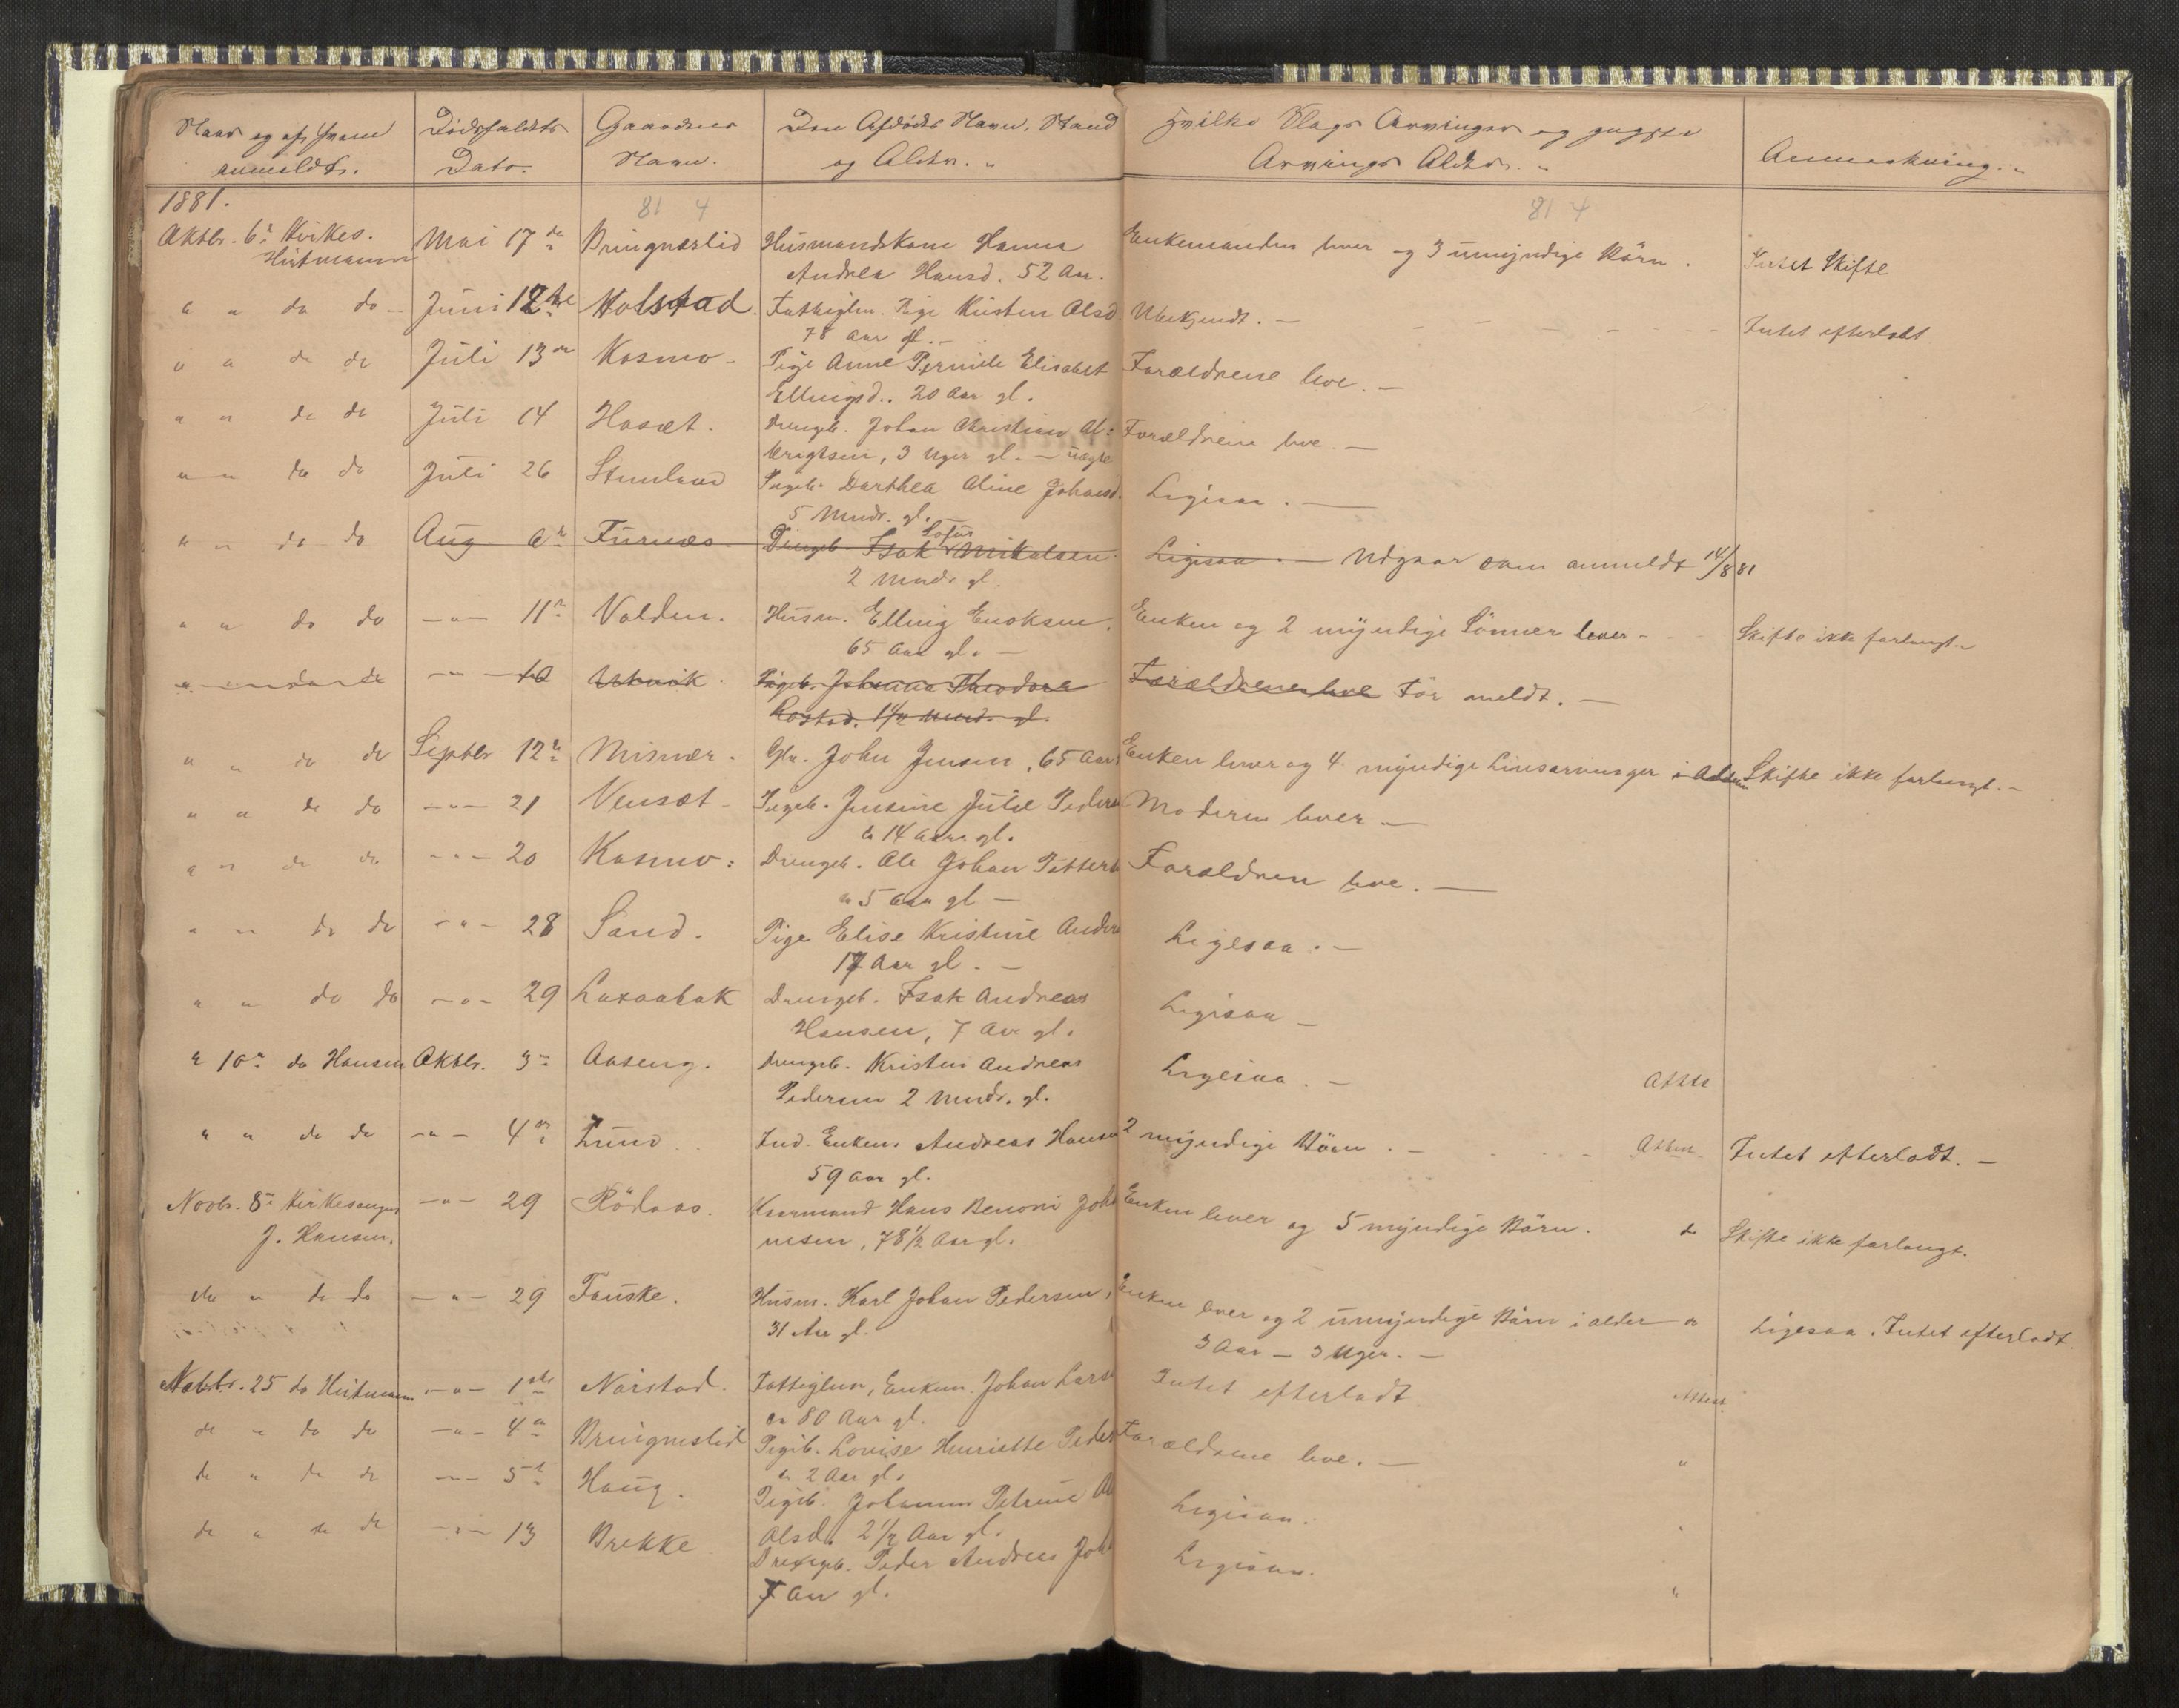 Naar og af hvem anmeldt. Dødsfaldets Dato. Gaardens Navn. Den Afdødes Navn, Stand og Alder. Hvilke Slags Arvinger og yngste Arvings Alder. Anmærkning.
1881. 81 4 81 4
Oktbr. 6. Kirkes. Mai 17de Bringnæslid Husmandskone Hanna Enkemanden lever og 3 umyndige Børn. Intet Skifte
Andrea Hansd. 52 Aar.
" " do do Juni 12te Holstad. Fattiglm. Pige Kirsten Olsd. Ubekjendt. Intet efterladt
78 Aar gl.
" " do do Juli 13 Kosmo Pige Anne Pernille Elisabet Forældrene leve.
Ellingsd. 20 Aar gl.
" " do do Juli 14 Hasæt. Drengeb. Johan Christian Al: Forældrene leve.
brigtsen, 3 Uger gl. – uægte
" " do do Juli 26 Pigeb. Dorthea Oline Johansd. Ligesaa.
5 Mndr. gl.
Sofus
" " do do Aug 6 Furnes Drengeb. Isak Mikalsen. Ligesaa. Udgaar som anmeldt 14/8 81
2 Mndr. gl.
" " do do - " - 11 Valden. Husm. Elling Enoksen. Enken og 2 myndige Sønner lever Skifte ikke forlangt.
65 Aar gl.
" " do do - " - 10 Pigeb. Johanna Theodora Forældrene leve Før meldt.
1 1/2 Mnd. gl.
" " do do Septbr 12 Misvær. Gln. John Jensen, 65 Aar Enken lever og 4 myndige Livsarvinger i Alder Skifte ikke forlangt.
" " do do - " - 21 Vensæt Pigeb. Jensine Julie Peders Moderen lever
14 Aar gl.
" " do do - " - 20 Kosmo: Drengeb. Ole Johan Petters Forældren leve.
5 Aar gl
" " do do - " - 28 Sand. Pige Elise Kristine Anders Ligesaa.
17 Aar gl.
" " do do - " - 29 Laxaabak Drengeb. Isak Andreas Ligesaa
Hansen, 7 Aar gl.
" 10 do Hansen Oktbr. 3 Aaseng. Drengeb. Kristen Andreas Ligesaa. Atste
Pedersen 2 Mndr. gl.
" " do do - " - 4 Lund Ind. Enkem. Andreas Hansen 2 myndige Børn. Intet efterladt.
59 Aar gl.
Novbr. 8 Kirkesanger - " - 29 Rödaas. Kaarmand Hans Benoni Joh Enken lever og 5 myndige Børn. do Skifte ikke forlangt.
J. Hansen. nesen, 78 1/2 Aar gl.
do " do do - " - 29 Fauske. Husm. Karl Johan Pedersen, Enken lever og 2 umyndige Børn i alder do Ligesaa. Intet efterladt.
31 Aar gl. 3 Aar – 3 Uger.
Novbr. 25 do - " - 1ste Narstad. Fattiglm, Enkem. Johan Lars Intet efterladt. Attest.
80 Aar gl.
do " do do - " - 4 Bringneslid Pigeb. Lovise Henriette Peder Forældrene leve. "
2 Aar gl.
do " do do - " - 5 Haug. Pigeb. Johanna Petrine Ligesaa. "
Olsd. 2 1/2 Aar gl.
do " do do - " - 13 Brekke Drengeb. Peder Andreas Joh Ligesaa. "
7 Aar gl.